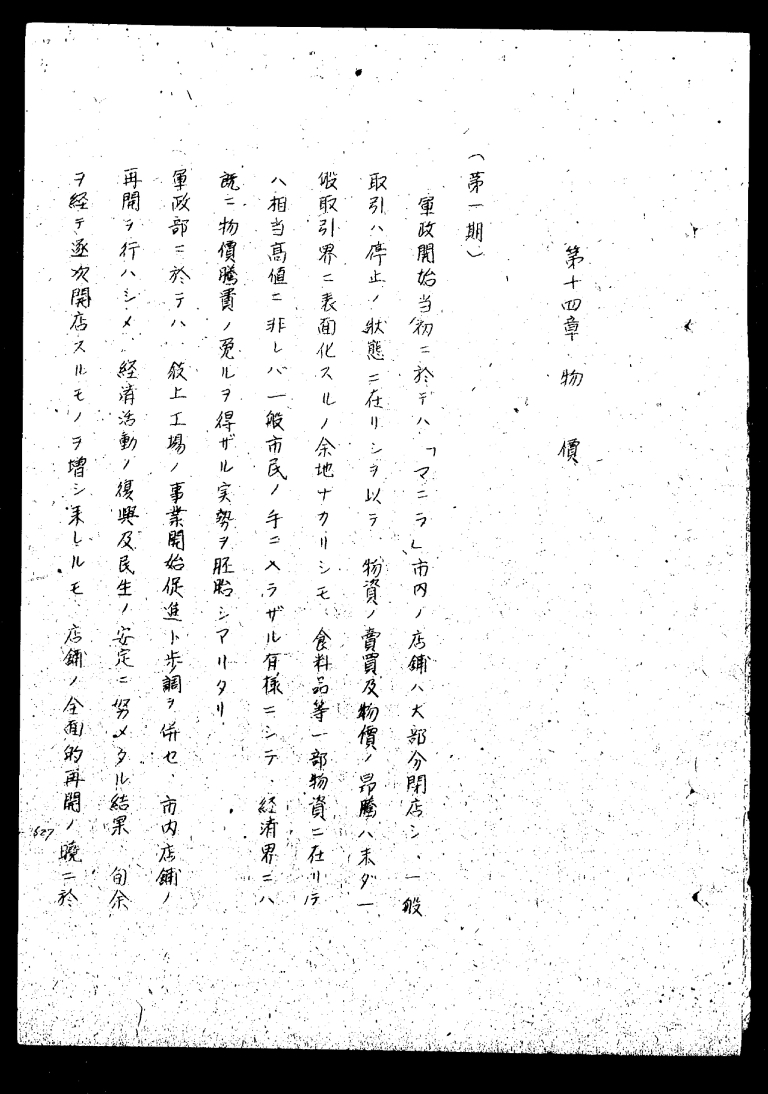 第十四章 物 價
(第一期)
軍政開始当初ニ於テハ「マニラ」市内ノ店鋪ハ大部分閉店シ、一般
取引ハ停止ノ狀態ニ在リシヲ以テ 物資ノ賣買及物價ノ昂騰ハ未ダ一
般取引界ニ表面化スルノ余地ナカリシモ、食料品等一部物資ニ在リテ
ハ相当高値ニ非レバ一般市民ノ手ニ入ラザル有様ニシテ、経済界ニハ
既ニ物價騰貴ノ免ルヲ得ザル実勢ヲ胚胎シアリタリ
軍政部ニ於テハ 敍上工場ノ事業開始促進ト歩調ヲ併セ、市内店鋪ノ
再開ヲ行ハシメ 経済活動ノ復興及民生ノ安定ニ努メタル結果 旬余
ヲ経テ逐次開店スルモノヲ増シ来レルモ 店鋪ノ全面的再開ノ暁ニ於
627